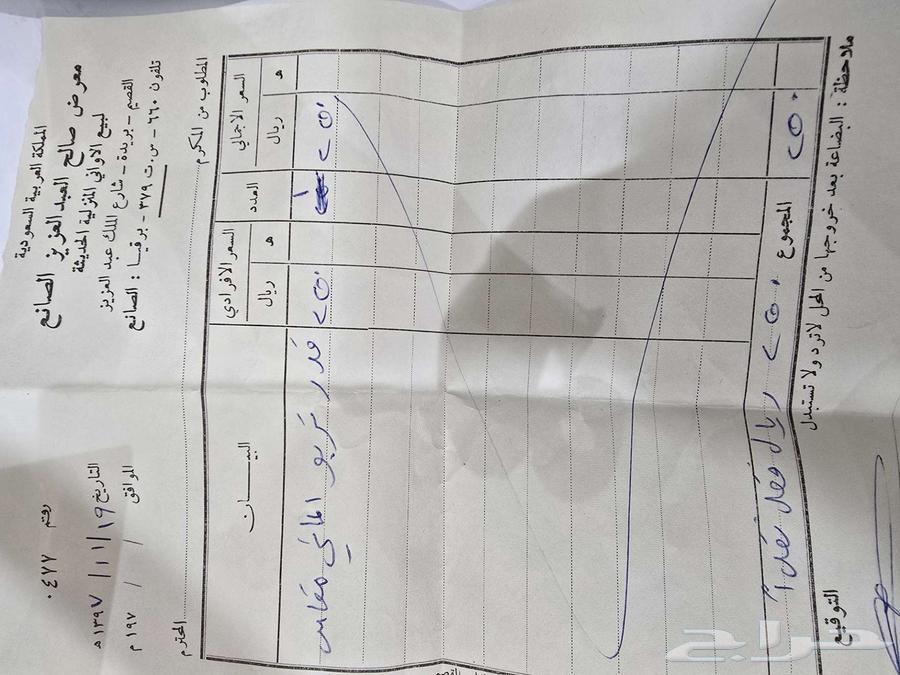 المملكة العربية السعودية
معرض صالح العبد العزيز الصانع
لبيع الاواني المنزلية الحديثة
القصيم - بريدة - شارع الملك عبد العزيز
تلفون ٦٦٠ - س.ت ٣٧٩ - برقيا : الصانع
رقم ٠٤٧٧
التاريخ ١٩ / ١١ / ١٣٩٧ هـ
الموافق / / ١٩٧ م
المطلوب من المكرم المحترم
السعر الاجمالي العدد السعر الافرادي البيــــان
هـ ريال هـ ريال
٢٥٠ ١ ٢٥٠ قدر تربو الماني مقاس
٢٥٠ المجموع ٢٥٠ ريال فقط نقداً
ملاحظة : البضاعة بعد خروجها من المحل لاترد ولا تستبدل
التوقيع
حراج